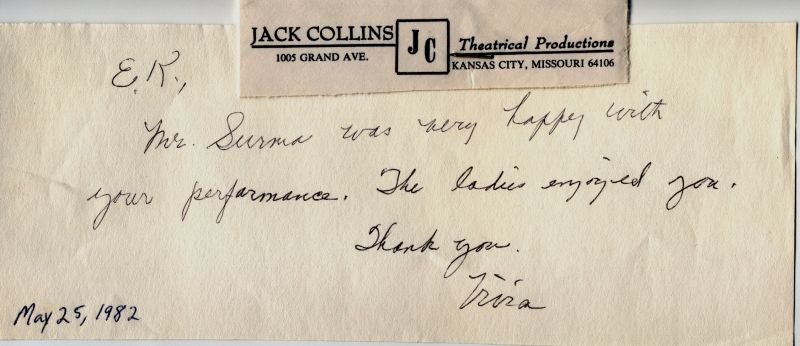 JACK COLLINS
1005 GRAND AVE.
JC
Theatrical Productions
KANSAS CITY, MISSOURI 64106
E.K.,
Mr. Surma was very happy with
your performance. The ladies enjoyed you.
Thank you.
May 25, 1982